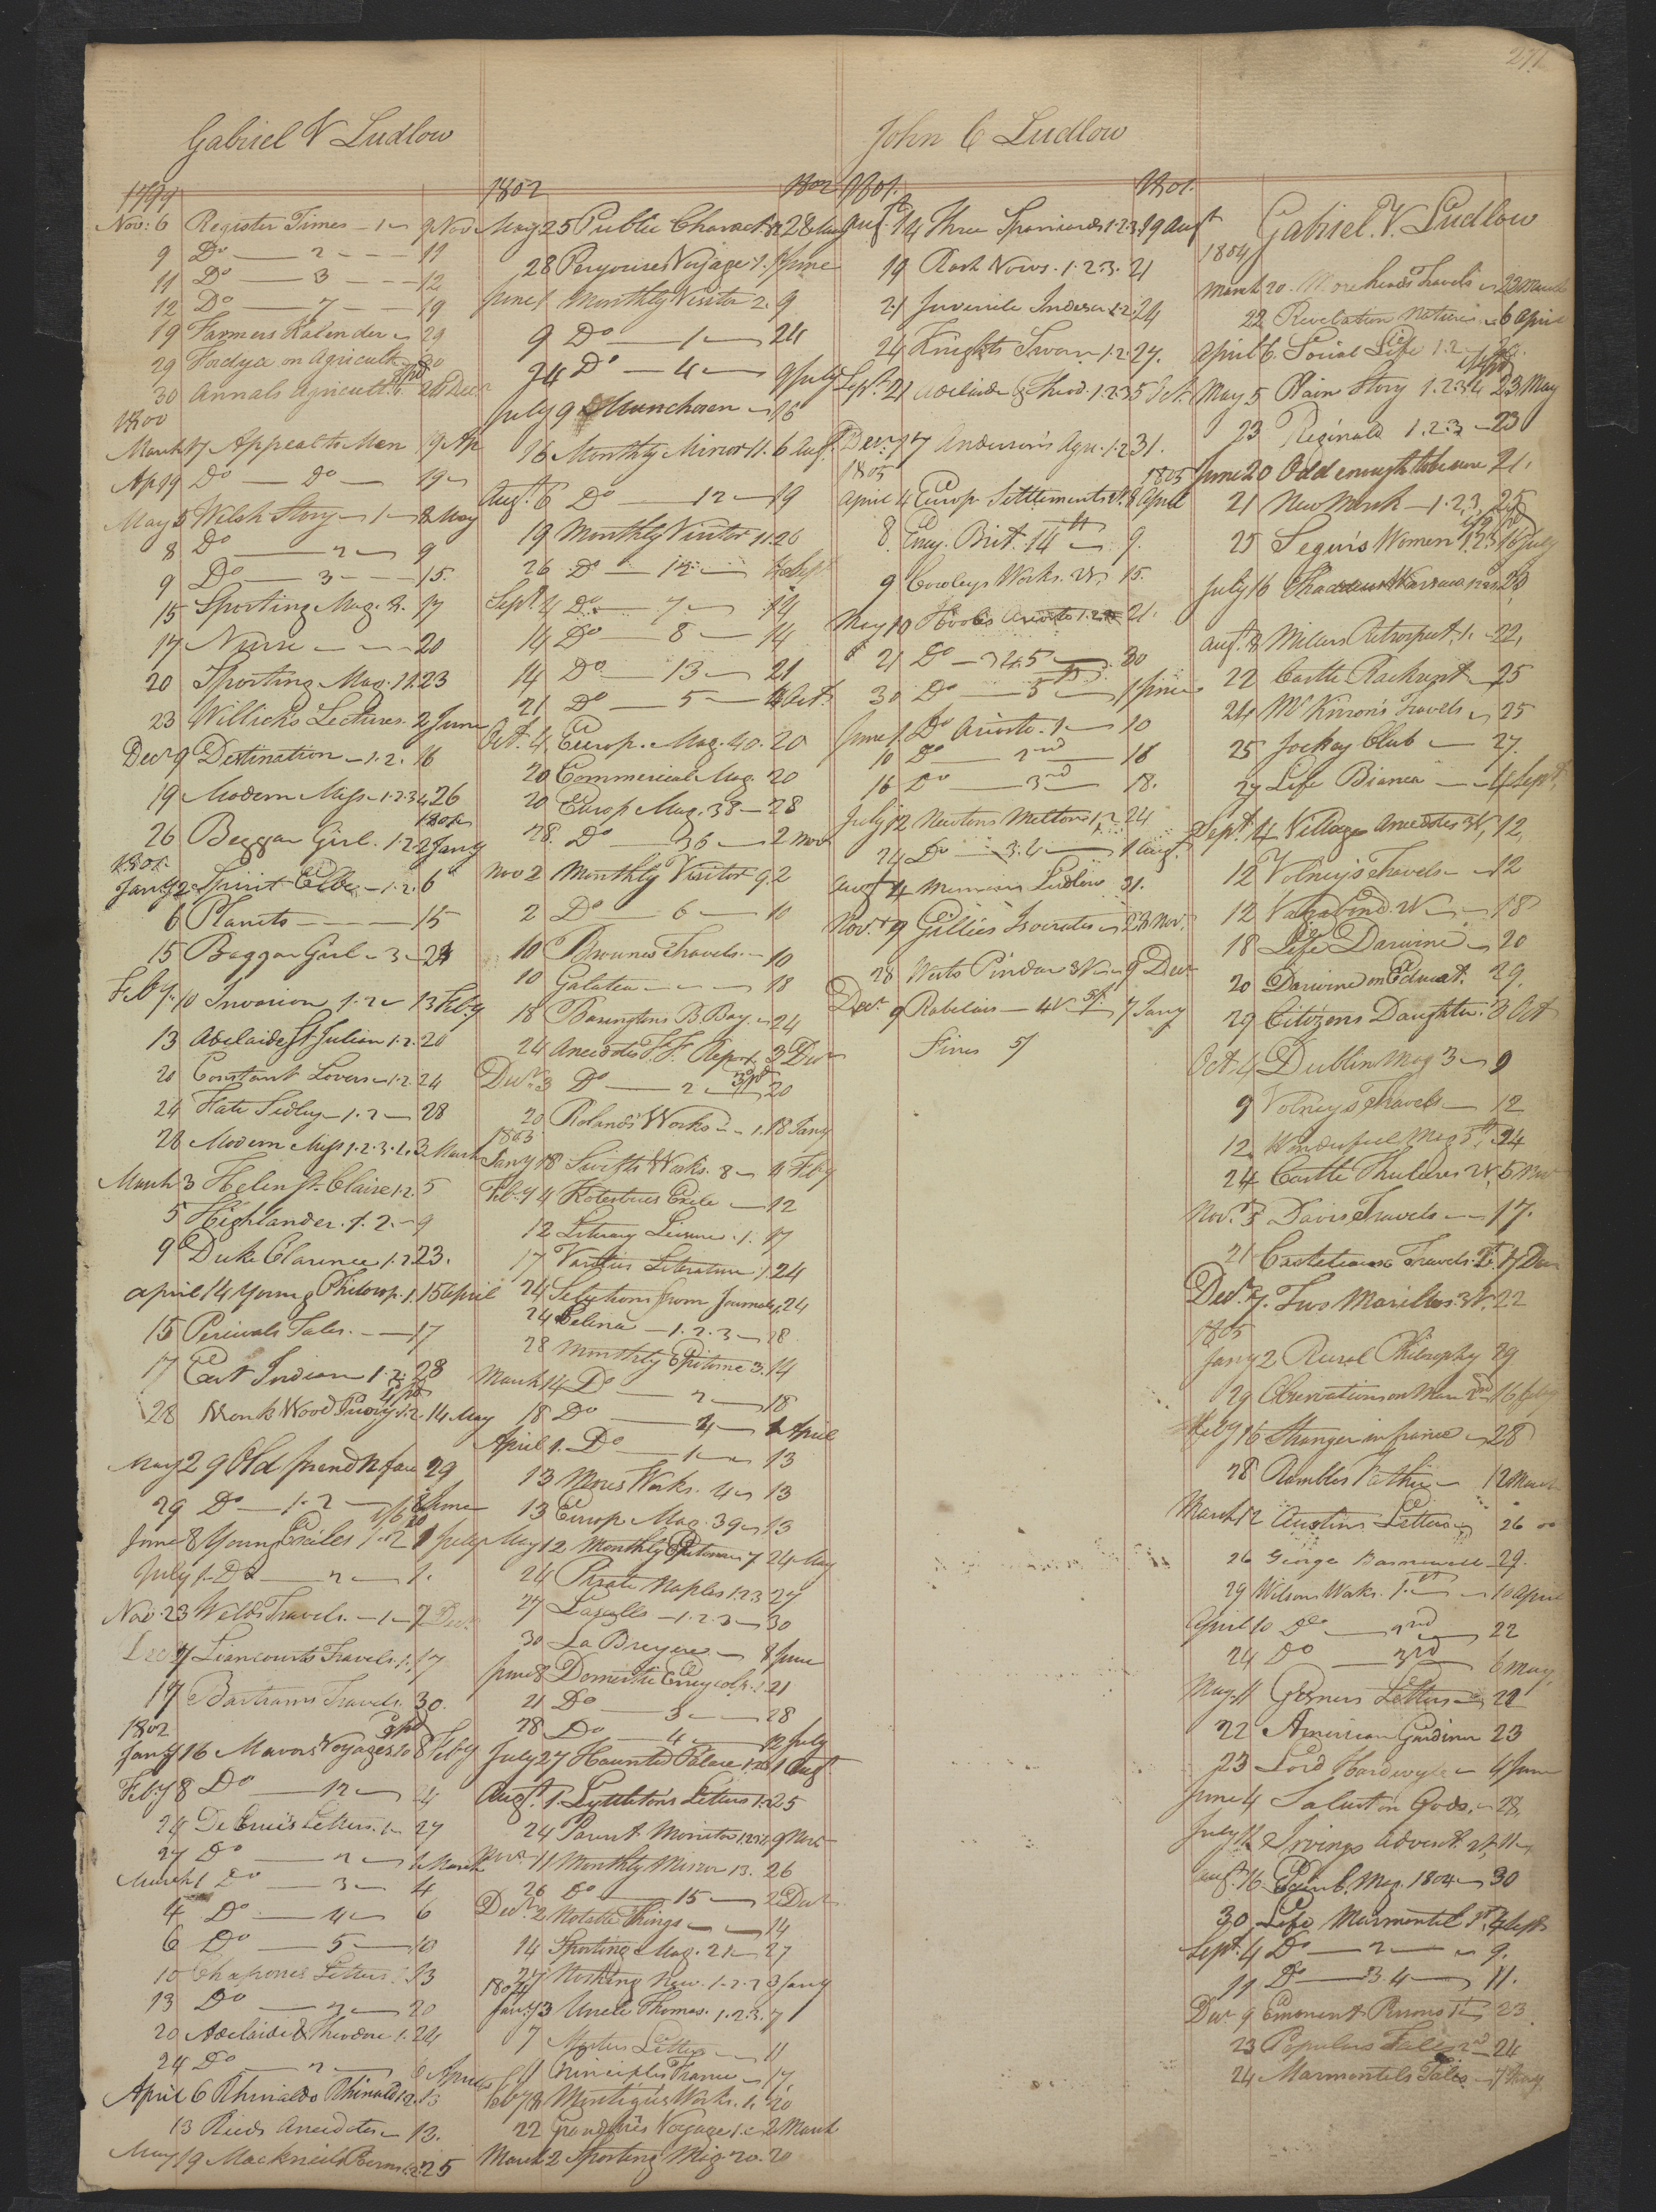 277
Gabriel V Ludlow
1799
Nov: 6 Register Times - 1 9 Nov
9 Do 2 11
11 Do 3 12
12 Do 7 19
19 Farmers Kalender 29
29 Fordyce on Agricult 30
30 Annals Agricult. 26 Decr
1800
March 17 Appeal to Men 19 Ap
Ap 19 Do Do 19
May 5 Welsh Story 1 8 May
8 Do 2 9
9 Do 3 15
15 Sporting Mag. 17
17 Nurse 20
20 Sporting Mag. 11. 23
23 Willich's Lectures 2 June
Decr 9 Destination 1.2. 16
19 Modern Miss 1.2.3.4 26
26 Beggar Girl. 1.2. 2 Jany
1801
Jany 2 Spirit Elbe 1.2. 6
6 Planets 15
15 Beggar Girl 3 24
Feby. 10 Invasion 1.2 13 Feby
13 Adelaide St Julian 1.2. 20
20 Constant Lovers 1.2. 24
24 Fate Sedley 1.2 28
28 Modern Miss 1.2.3. 3 March
March 3 Helen St Claire 1.2. 5
5 Highlander. 1.2. 9
9 Duke Clarence 1.2 23.
April 14 Young Philosop. 1. 15 April
15 Percivals Tales. 17
17 East Indian 1.2. 28
28 Monk Wood Priory 1.2. 14 May
May 29 Old friend N face 29
29 Do 1.2 8 June
June 8 Young Exiles 1.2 1 July
July 1 Do 2 1.
Nov: 23 Welds Travels. 1 7 Decr
Dec 7 Liancourts Travels. 1. 17
17 Bartrams Travels. 30.
1802
Jany 16 Mavors Voyages 10 8 Feby
Feby 8 Do 12 24
24 De Brui's Letters. 1 27
27 Do 2 1 March
March 1 Do 3 4
4 Do 4 6
6 Do 5 10
10 Chapones Letters. 13
13 Do 2 20
20 Adelaide & Theodore 1. 24
24 Do 2 6 April
April 6 Rhinaldo Rhinaldi 1.2. 13
13 Rieds Anecdotes 13.
May 19 Mackneils Poems 1.2. 25
1802 1802
May 25 Public Charact. 28 May
28 Peyrouses Voyage 1. 1 June
June 1 Monthly Visitor 2. 9
9 Do 1 24
24 Do 4 9 July
July 9 Munchosen 16
16 Monthly Mirror 11. 6 Augt.
Augt. 6 Do 12 19
19 Monthly Visitor 11. 26
26 Do 12 4 Sept
Sept. 4 Do 7 14
14 Do 8 14
14 Do 13 21
21 Do 5 4 Oct.
Oct. 4 Europ. Mag. 40. 20
20 Commercial Mag. 20
20 Europ Mag. 38 28
28. Do 36 2 Nov
Nov 2 Monthly Visitor 9. 2
2 Do 6 10
10 Brownes Travels. 10
10 Galatea 18
18 Barringtons B Bay. 24
24 Anecdotes F.F. Repos. 3 Decr
Decr. 3 Do 2 20
20 Rolands Works 1. 18 Jany
1803
Jany 18 Swifts Works. 8 4 Feby
Feby 4 Kotzebues Exile 12
12 Literary Leisure. 1. 17
17 Varities Literature 1. 24
24 Selections from Journals. 24
24 Celina 1.2.3 28
28 Monthly Epitome 3. 14
March 14 Do 2 18
18 Do 4 1 April
April 1. Do 1 13
13 Mores Works. 4 13
13 Europ Mag. 39 13
May 12 Monthly Epitome 7 24 May
24 Pirate Naples 1.2.3 27
27 Lascelles 1.2.3 30
30 La Bruyere 8 June
June 8 Domestic Encyclop. 21
21 Do 3 28
28 Do 4 12 July
July 27 Haunted Palace 1.2.3 1 Augt
Augt. 1. Lyttleton's Letters 1.2 25
24 Parent Monitor 1.2.3.4 9 Nov
Nov. 11 Monthly Mirror 13. 26
26 Do 15 2 Decr
Decr. 2 Notable Things 14
14 Sporting Mag. 21 27
27 Nothing New. 1.2.3 3 Jany
1804
Jany 3 Uncle Thomas. 1.2.3. 7
7 Letters 11
11 Principles France 17
Feby Works. 1. 20
22 Grandpre's Voyage 1. 2 March
March 2 Sporting Mag 20. 20
John C Ludlow
1801. 1801.
Augt. 14 Three Spaniards 1.2.3. 19 Augt
19 Rash Vows. 1.2.3. 21
21 Juvenile Indiscr. 1.2. 24
24 Knights Swan 1.2. 27.
Sept. 21 Adelaide & Theod. 1.2.3 5 Oct.
Decr. 17 Anderson's Agri. 1.2 31.
1805 1805
April 4 Europ Settlements 8 April
8. Ency. Brit. 14th 9.
9 Cowleys Works. 2V 15.
May 10 Hools Ariosto 1.2 21.
21 Do 3.4.5 30
30 Do 5 1 June
June 1 Do Ariosto. 1 10
10 Do 2nd 16
16 Do 3rd 18.
July 12 Newtons Milton 1.2 24
24 Do 3.4 1 Augt.
Augt 4 Memoirs Ludlow 31.
Novr. 9 Gillies Isocrates 28 Novr.
28 Wests Pindar 3V 9 Decr
Decr. 9 Rabelais 4V 5/ 7 Jany
Fines 5/
Gabriel. V. Ludlow
1804
March 20. Moreheads Travels 22 March
22 Revelation Natures 6 April
April 6. Social Life 1.2
May 5 Plain Story 1.2.3.4 23 May
23 Reginald 1.2.3 23
June 20 Odd enough to be sure 21.
21 New Monk 1.2.3. 25
25 Segur's Women 1.2.3 16 July
July 16 Thaddeus Warsaw 23
Augt. 8 Millers Retrospect. 1. 22,
22 Castle Rackrent 25
24 McKinon's Travels 25
25 Jockey Club 27.
27 Life Bianca 4 Sept.
Sept. 4 Village Anecdotes 3V, 12,
12 Volney's Travels 12
12 Vagabond. 2V 18
18 Life Darwine 20
20 Darwine on Educat. 29.
29 Citizens Daughter. 3 Oct
Oct. 4 Dublin Mag 3 9
9 Volney's Travels 12
12 Wonderful Mag 5th. 24
24 Castle Thulieres 2V, 5 Nov
Nov. 5 Davis Travels 17.
21 Travels. 17 Decr
Decr. 7. Two Marillos. 3V. 22
1805
Jany 2 Rural Philosophy 29
29 Observations on Man 2nd 16 Feby
Feby 16 Stranger in france 28
28 Rambles 12 March
March 12 Austins Letters 26
26 George Barnewell 29.
29 Wilsons Works. 1st 10 April
April 10 Do 2nd 22
24 Do 3rd 6 May.
May. 11 Gesners Letters 22
22 American Gardiner 23
23 Lord Hardwyke 4 June
June 4 Salust on Gods, 28,
July 11 Irvings Advent. 2V, 11
Augt. 16. Edinb. Mag. 1804 30
30 Life Marmontel 1st. 4 Sept
Sept. 4 Do 2 9.
11 Do 3.4 11.
Decr 9 Eminent Persons 1st 23
23 Populus Tales 2nd 24
24 Marmontels Tales